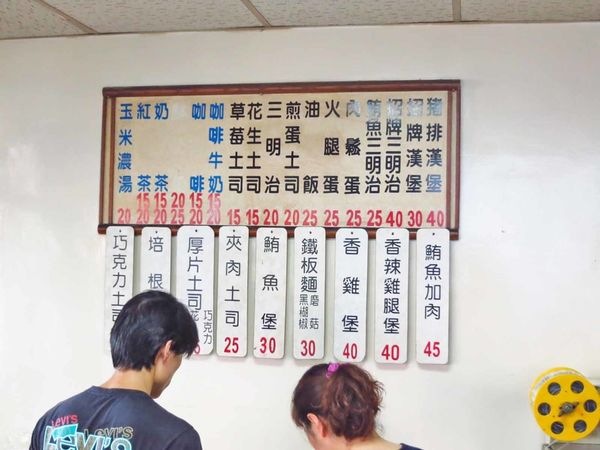 豬排漢堡 40
招牌漢堡 30
招牌三明治 40
鮪魚三明治 25
肉鬆蛋 25
火腿蛋 25
油飯 25
煎蛋土司 20
三明治 20
花生土司 15
草莓土司 15
咖啡牛奶 15 20
咖啡 15 20
奶茶 15 20
紅茶 15 20
玉米濃湯 20
鮪魚加肉 45
香辣雞腿堡 40
香雞堡 40
鐵板麵 蘑菇 黑椒 30
鮪魚堡 30
夾肉土司 25
厚片土司 巧克力
培根
巧克力土司
Levi's
Levi's
Levi's